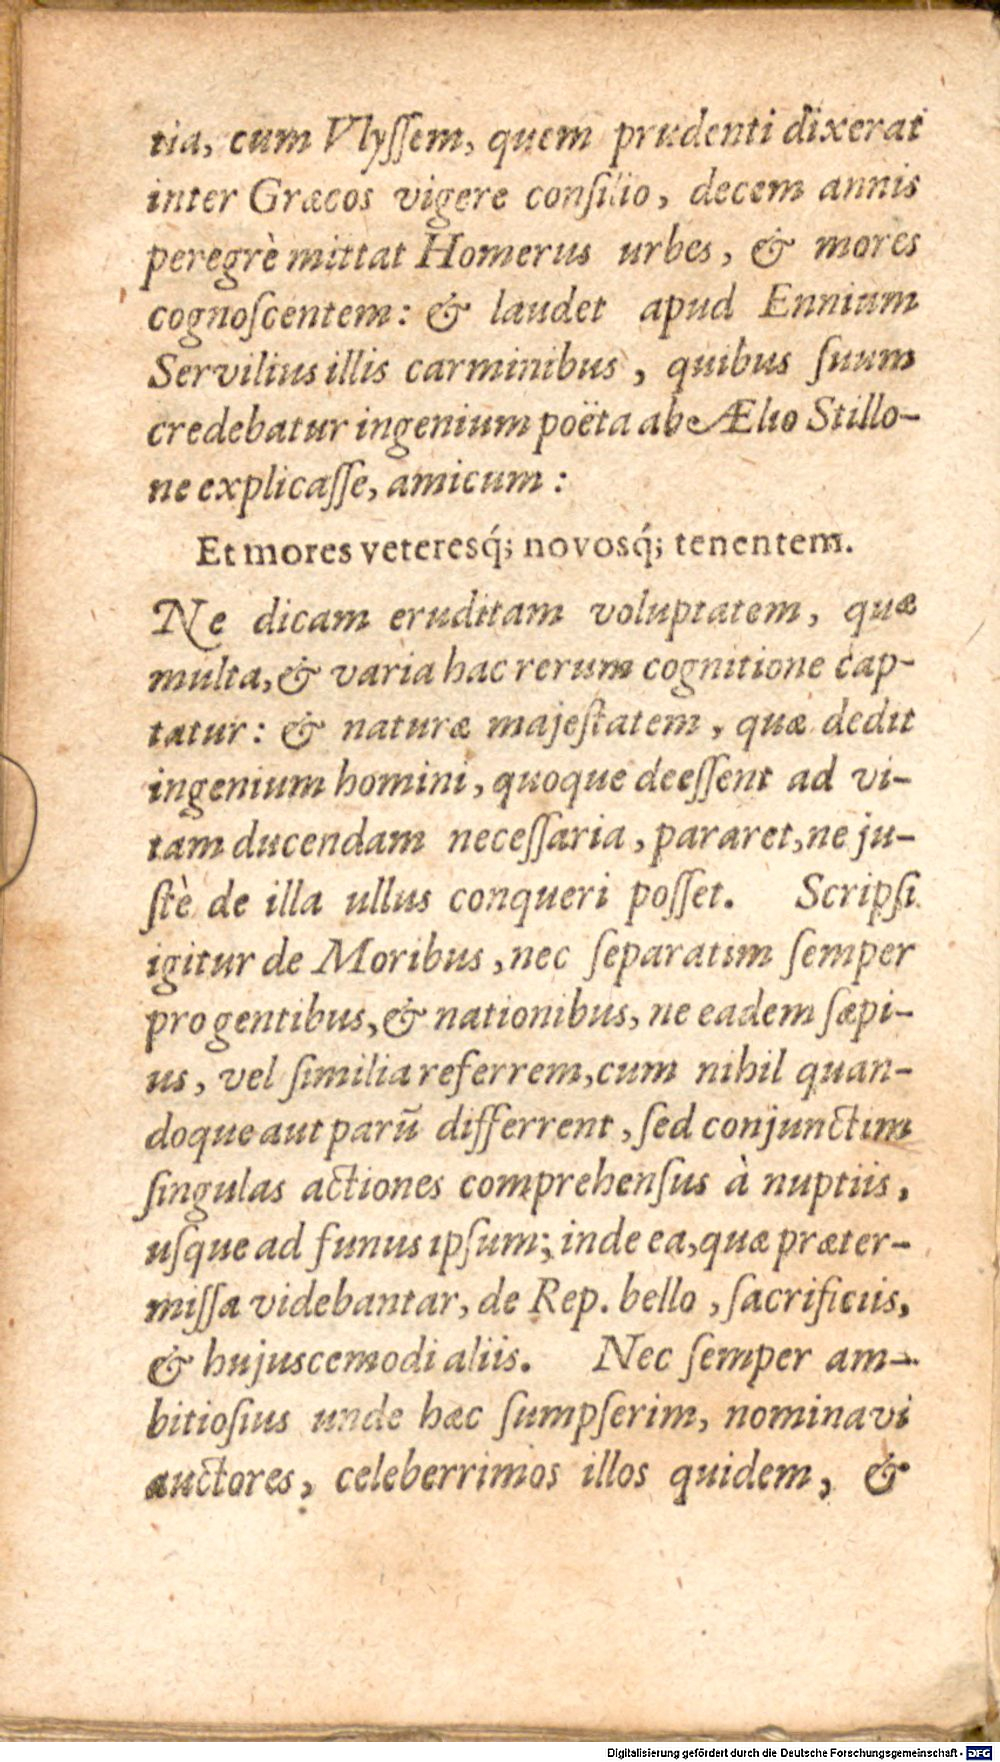 tia, cum Vlyſſem, quem prudenti dixerat
inter Græcos vigere conſilio, decem annis
peregrè mittat Homerus urbes, & mores
cognoſcentem: & laudet apud Ennium
Servilius illis carminibus, quibus ſuum
credebatur ingenium poëta ab Ælio Stillo-
ne explicaſſe, amicum:
Et mores veteresq́; novosq́; tenentem.
Ne dicam eruditam voluptatem, quæ
multa, & varia hac rerum cognitione cap-
tatur: & naturæ majeſtatem, quæ dedit
ingenium homini, quoque deeſſent ad vi-
tam ducendam neceſſaria, pararet, ne ju-
ſtè de illa ullus conqueri poſſet. Scripſi
igitur de Moribus, nec ſeparatim ſemper
pro gentibus, & nationibus, ne eadem ſæpi-
us, vel ſimilia referrem, cum nihil quan-
doque aut parū differrent, ſed conjunctim
ſingulas actiones comprehenſus à nuptiis,
uſque ad funus ipſum; inde ea, quæ præter-
miſſa videbantar, de Rep. bello, ſacrificiis,
& hujuscemodi aliis. Nec ſemper am-
bitioſius unde hæc ſumpſerim, nominavi
auctores, celeberrimos illos quidem, &
Digitalisierung gefördert durch die Deutsche Forschungsgemeinschaft - DFG